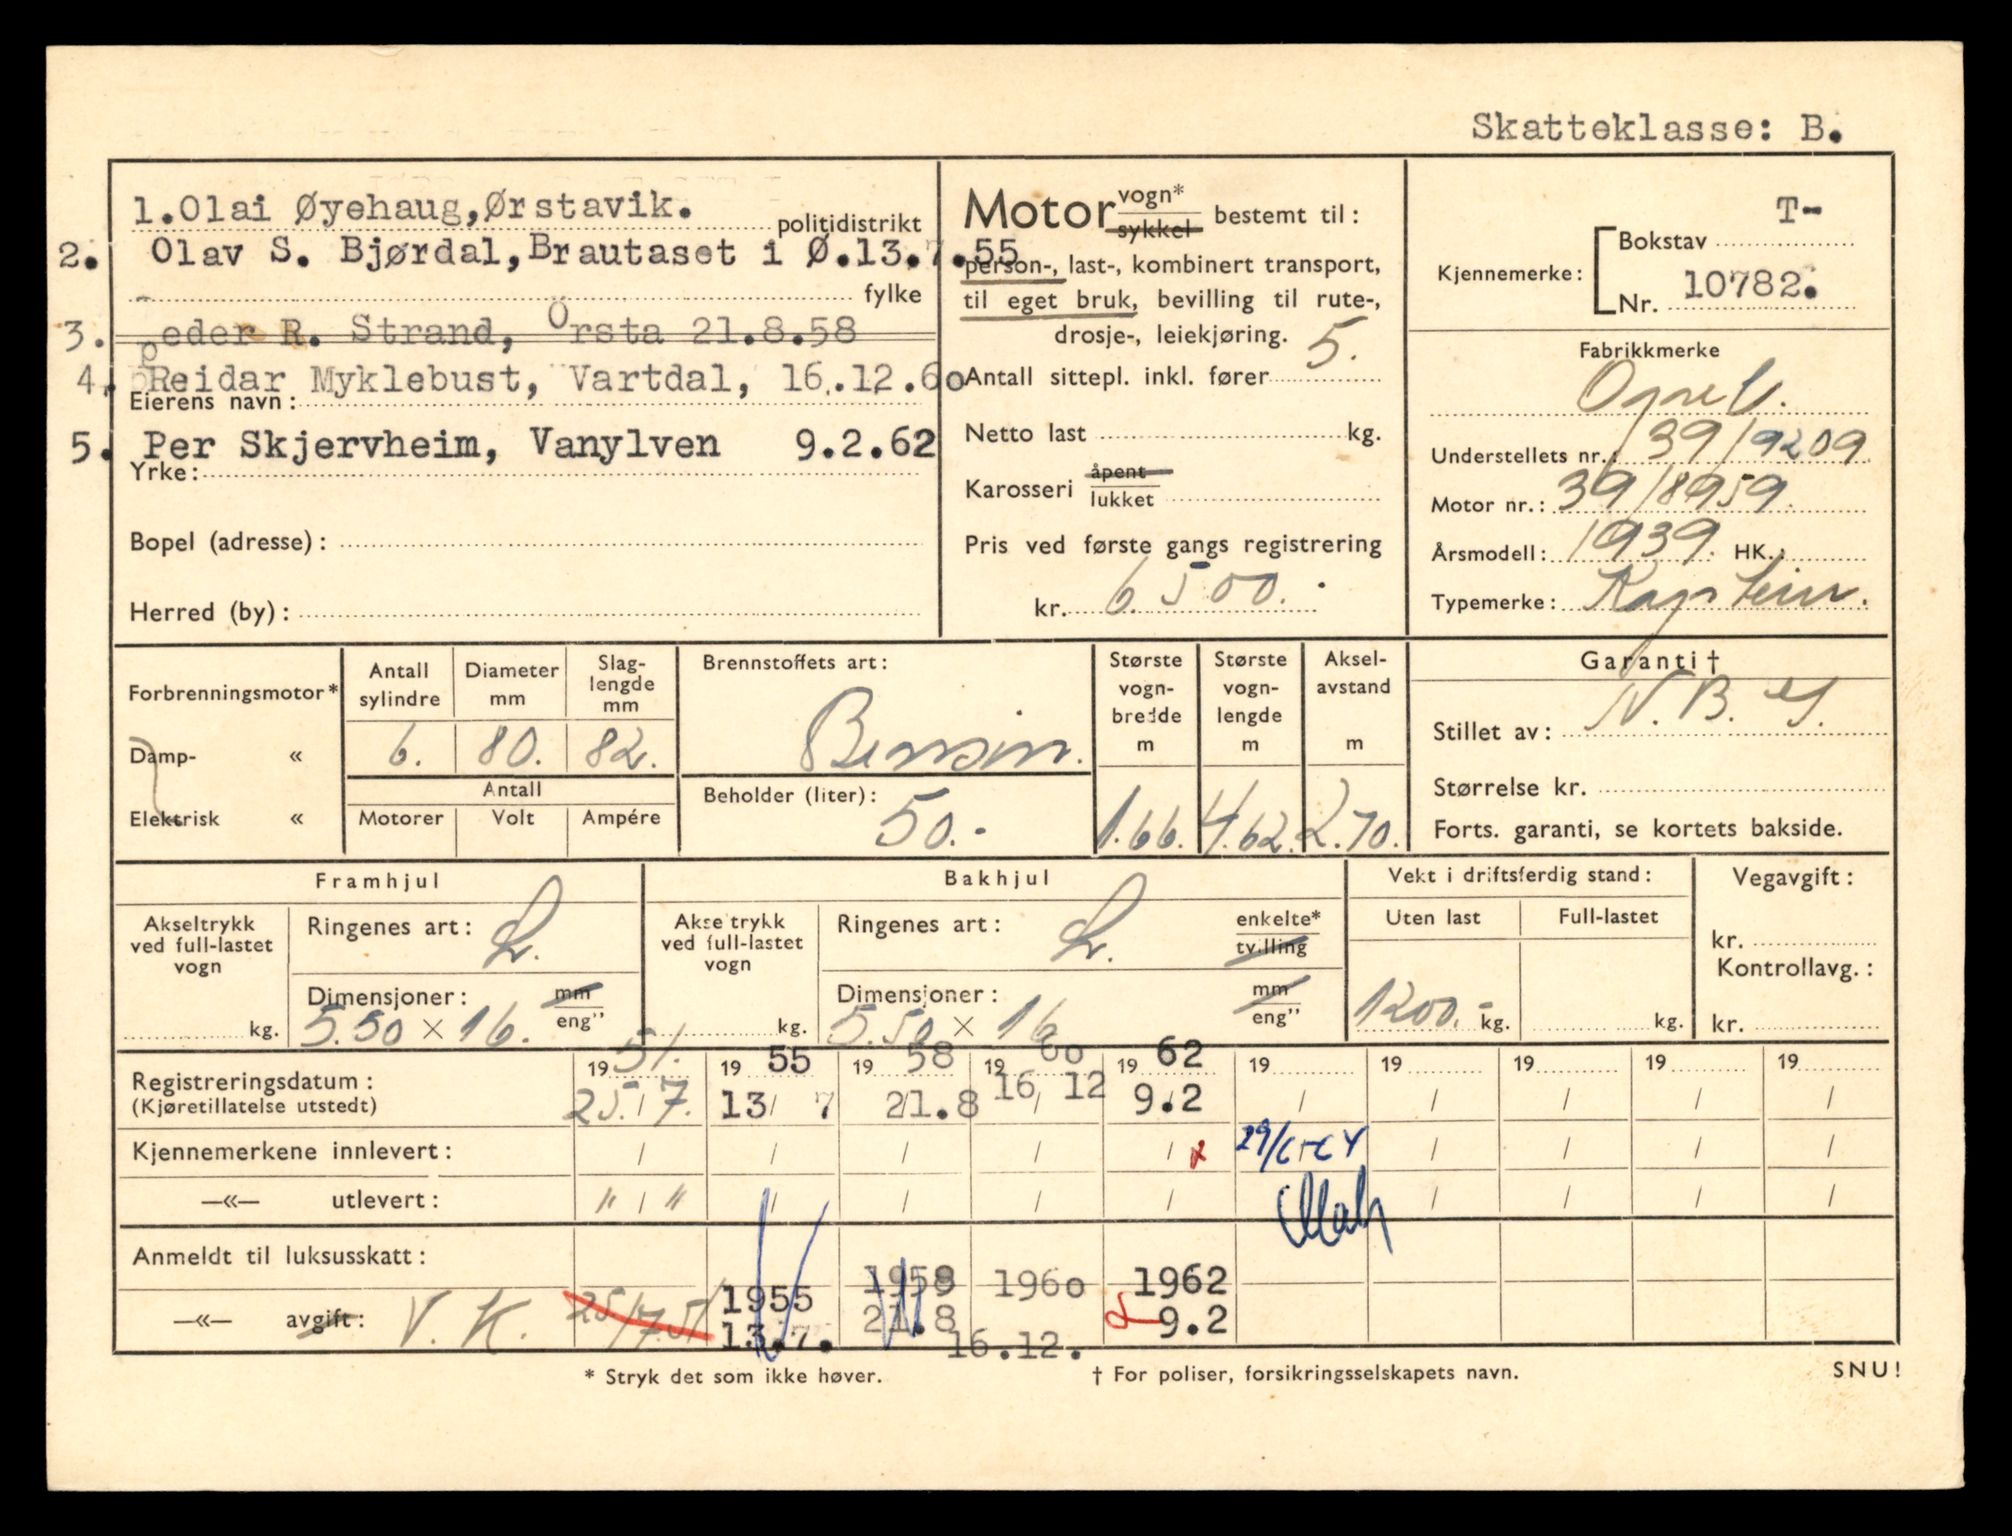 Skatteklasse: B.
1.Olai Øyehaug,Ørstavik.
politidistrikt
2. Olav S. Bjørdal,Brautaset i Ø.13.7.55
fylke
3. Peder R. Strand, Örsta 21.8.58
4. Reidar Myklebust, Vartdal, 16.12.60
Eierens navn:
5. Per Skjervheim, Vanylven 9.2.62
Yrke:
Bopel (adresse):
Herred (by):
Motor vogn* sykkel bestemt til:
person-, last-, kombinert transport,
til eget bruk, bevilling til rute-,
drosje-, leiekjøring.
Antall sittepl. inkl. fører 5.
Netto last kg.
Karosseri åpent lukket
Pris ved første gangs registrering
kr. 6500.-
Kjennemerke: Bokstav T-
Nr. 10782.
Fabrikkmerke
Opel.
Understellets nr.: 39/9209
Motor nr.: 39/8959.
Årsmodell: 1939. HK.:
Typemerke: Kaptein.
Forbrenningsmotor*
Damp- «
Elektrisk «
Antall sylindre
Diameter mm
Slag-lengde mm
6. 80. 82.
Antall
Motorer Volt Ampére
Brennstoffets art:
Bensin.
Beholder (liter):
50.-
Største vogn-bredde m
Største vogn-lengde m
Aksel-avstand m
1.66. 4.62. 2.70.
Garanti †
Stillet av: N. B.
Størrelse kr.
Forts. garanti, se kortets bakside.
Framhjul
Akseltrykk ved full-lastet vogn
kg.
Ringenes art: L.
Dimensjoner: mm eng"
5.50 × 16.
Bakhjul
Akseltrykk ved full-lastet vogn
kg.
Ringenes art: L. enkelte* tvilling
Dimensjoner: mm eng"
5.50 × 16
Vekt i driftsferdig stand:
Uten last Full-lastet
1200.- kg. kg.
Vegavgift:
kr.
Kontrollavg.:
kr.
Registreringsdatum: 19 51. 19 55 19 58 19 60 19 62 19 19 19 19 19
(Kjøretillatelse utstedt) 25/7. 13/7 21.8 16/12 9.2 / / / / /
Kjennemerkene innlevert: / / / / / x 29/ / / / /
—«— utlevert: " / " / / / / / / / /
Anmeldt til luksusskatt:
—«— avgift: V. K. 25/7.51
1955 1958 1960 1962
13.7. 21.8 16.12. 9.2
* Stryk det som ikke høver.
† For poliser, forsikringsselskapets navn.
SNU!